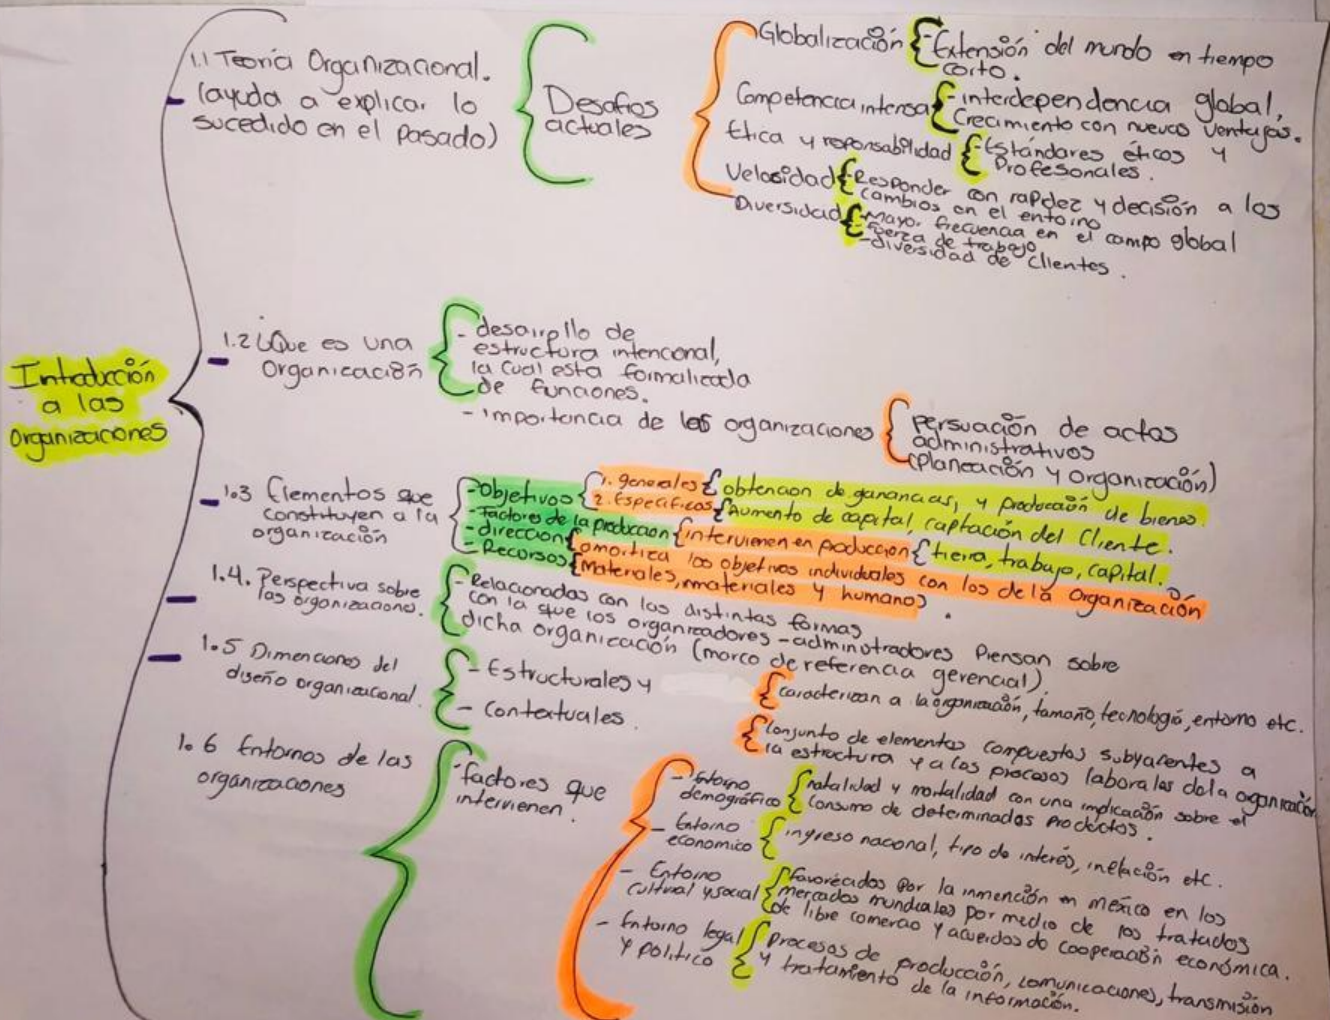 Introducción
a las
Organizaciones
1.1 Teoría Organizacional.
(ayuda a explicar lo
sucedido en el pasado)
Desafios
actuales
Globalización
-Extensión del mundo en tiempo
corto.
Competencia intensa
-interdependencia global,
Crecimiento con nuevas ventajas.
Etica y reponsabilidad
-Estándares éticos y
Profesionales.
Velosidad
Responder con rapidez y decisión a los
cambios en el entorno
Diversidad
-Mayor frecuencia en el campo global
-fuerza de trabajo
-diversidad de clientes.
1.2 ¿Que es una
Organización
- desarrollo de
estructura intencional,
la cual esta formalizada
de funciones.
- importancia de las organizaciones
Persuación de actos
administrativos
(Planeación y organización)
1.3 Elementos que
constituyen a la
organización
-Objetivos
1. generales
obtencion de ganancias, y producción de bienes.
2. Especificos
Aumento de capital, captación del Cliente.
-Factores de la produccion
intervienen en produccion
tierra, trabajo, capital.
-direccion
amortiza los objetivos individuales con los de la Organización
- Recursos
Materiales, materiales y humano).
1.4. Perspectiva sobre
las organizaciones.
- Relacionadas con las distintas formas
con la que los organizadores - administradores Piensan sobre
dicha organización (marco de referencia gerencial).
1.5 Dimenciones del
diseño organizacional.
- Estructurales y
caracterizan a la organización, tamaño, tecnología, entorno etc.
- Contextuales.
Conjunto de elementos compuestos subyacentes a
la estructura y a los procesos laborales de la oganización
1.6 Entornos de las
organizaciones
-factores que
intervienen.
- Entorno
demográfico
natalidad y mortalidad con una implicación sobre el
Consumo de determinados productos.
- Entorno
economico
ingreso nacional, tipo de interés, inflación etc.
- Entorno
Cultural y social
favorecidos por la inmención en méxico en los
mercados mundiales por medio de los tratados
de libre comercio y acuerdos de cooperación económica.
- Entorno legal
y politico
Procesos de producción, comunicaciones, transmisión
y tratamiento de la información.